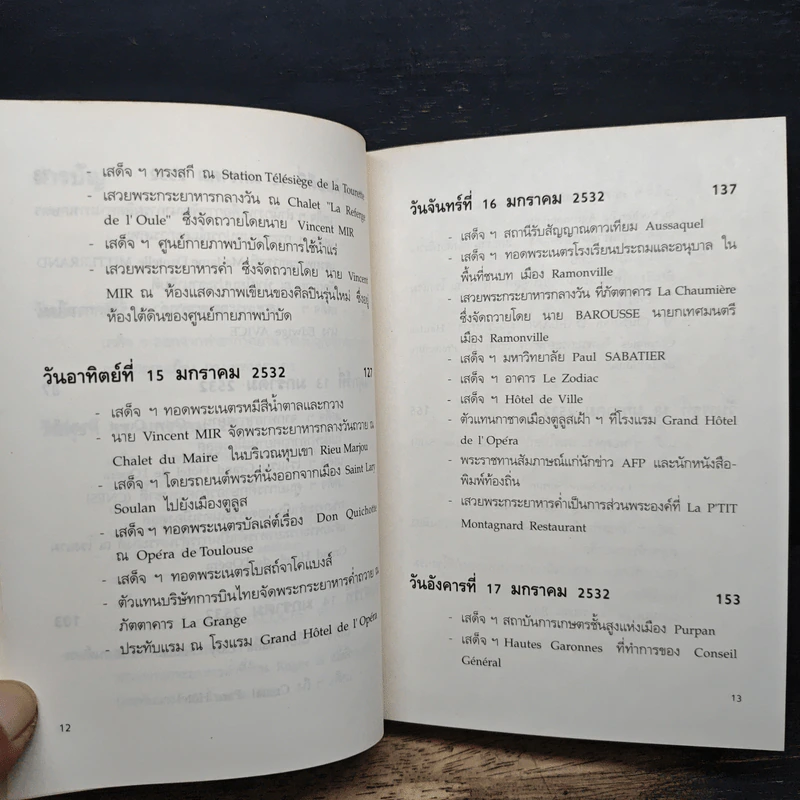 - เสด็จ ฯ ทรงสกี ณ Station Télésiège de la Tounette
- เสวยพระกระยาหารกลางวัน ณ Chalet "La Referge
de l'Oule" ซึ่งจัดถวายโดยนาย Vincent MIR
- เสด็จ ฯ ศูนย์กายภาพบำบัดโดยการใช้น้ำแร่
- เสวยพระกระยาหารค่ำ ซึ่งจัดถวายโดย นาย Vincent
MIR ณ ห้องแสดงภาพเขียนของศิลปินรุ่นใหม่ ซึ่งอยู่
ห้องใต้ดินของศูนย์กายภาพบำบัด
วันอาทิตย์ที่ 15 มกราคม 2532 127
- เสด็จ ฯ ทอดพระเนตรหมีสีน้ำตาลและกวาง
- นาย Vincent MIR จัดพระกระยาหารกลางวันถวาย ณ
Chalet du Maire ในบริเวณหุบเขา Rieu Marjou
- เสด็จ ฯ โดยรถยนต์พระที่นั่งออกจากเมือง Saint Lary
Soulan ไปยังเมืองตูลูส
- เสด็จ ฯ ทอดพระเนตรบัลเล่ต์เรื่อง Don Quichotte
ณ Opéra de Toulouse
- เสด็จ ฯ ทอดพระเนตรโบสถ์จาโคแบงส์
- ตัวแทนบริษัทการบินไทยจัดพระกระยาหารค่ำถวาย ณ
ภัตตาคาร La Grange
- ประทับแรม ณ โรงแรม Grand Hôtel de l'Opéra
12
วันจันทร์ที่ 16 มกราคม 2532 137
- เสด็จ ฯ สถานีรับสัญญาณดาวเทียม Aussaquel
- เสด็จ ฯ ทอดพระเนตรโรงเรียนประถมและอนุบาล ใน
พื้นที่ชนบท เมือง Ramonville
- เสวยพระกระยาหารกลางวัน ที่ภัตตาคาร La Chaumière
ซึ่งจัดถวายโดย นาย BAROUSSE นายกเทศมนตรี
เมือง Ramonville
- เสด็จ ฯ มหาวิทยาลัย Paul SABATIER
- เสด็จ ฯ อาคาร Le Zodiac
- เสด็จ ฯ Hôtel de Ville
- ตัวแทนกาชาดเมืองตูลูสเฝ้า ฯ ที่โรงแรม Grand Hôtel
de l'Opéra
- พระราชทานสัมภาษณ์แก่นักข่าว AFP และนักหนังสือ-
พิมพ์ท้องถิ่น
- เสวยพระกระยาหารค่ำเป็นการส่วนพระองค์ที่ La P'TIT
Montagnard Restaurant
วันอังคารที่ 17 มกราคม 2532 153
- เสด็จ ฯ สถาบันการเกษตรชั้นสูงแห่งเมือง Purpan
- เสด็จ ฯ Hautes Garonnes ที่ทำการของ Conseil
Général
13